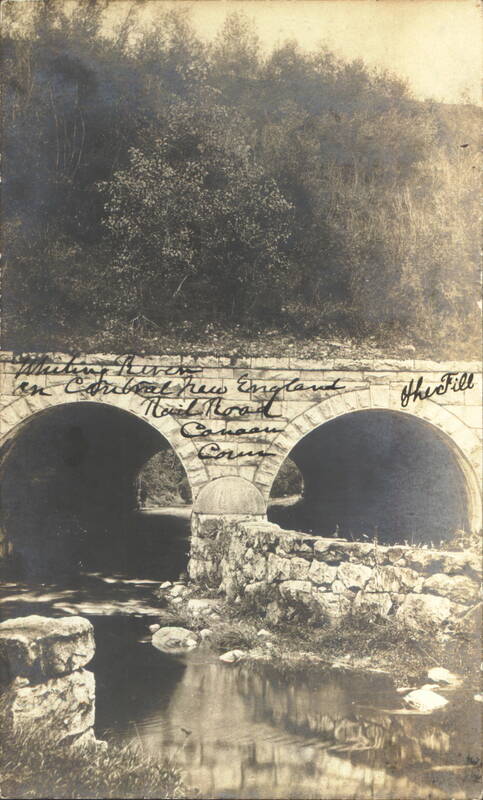 Whiting River
on Central New England
Rail Road
Canaan
Conn
the Fill